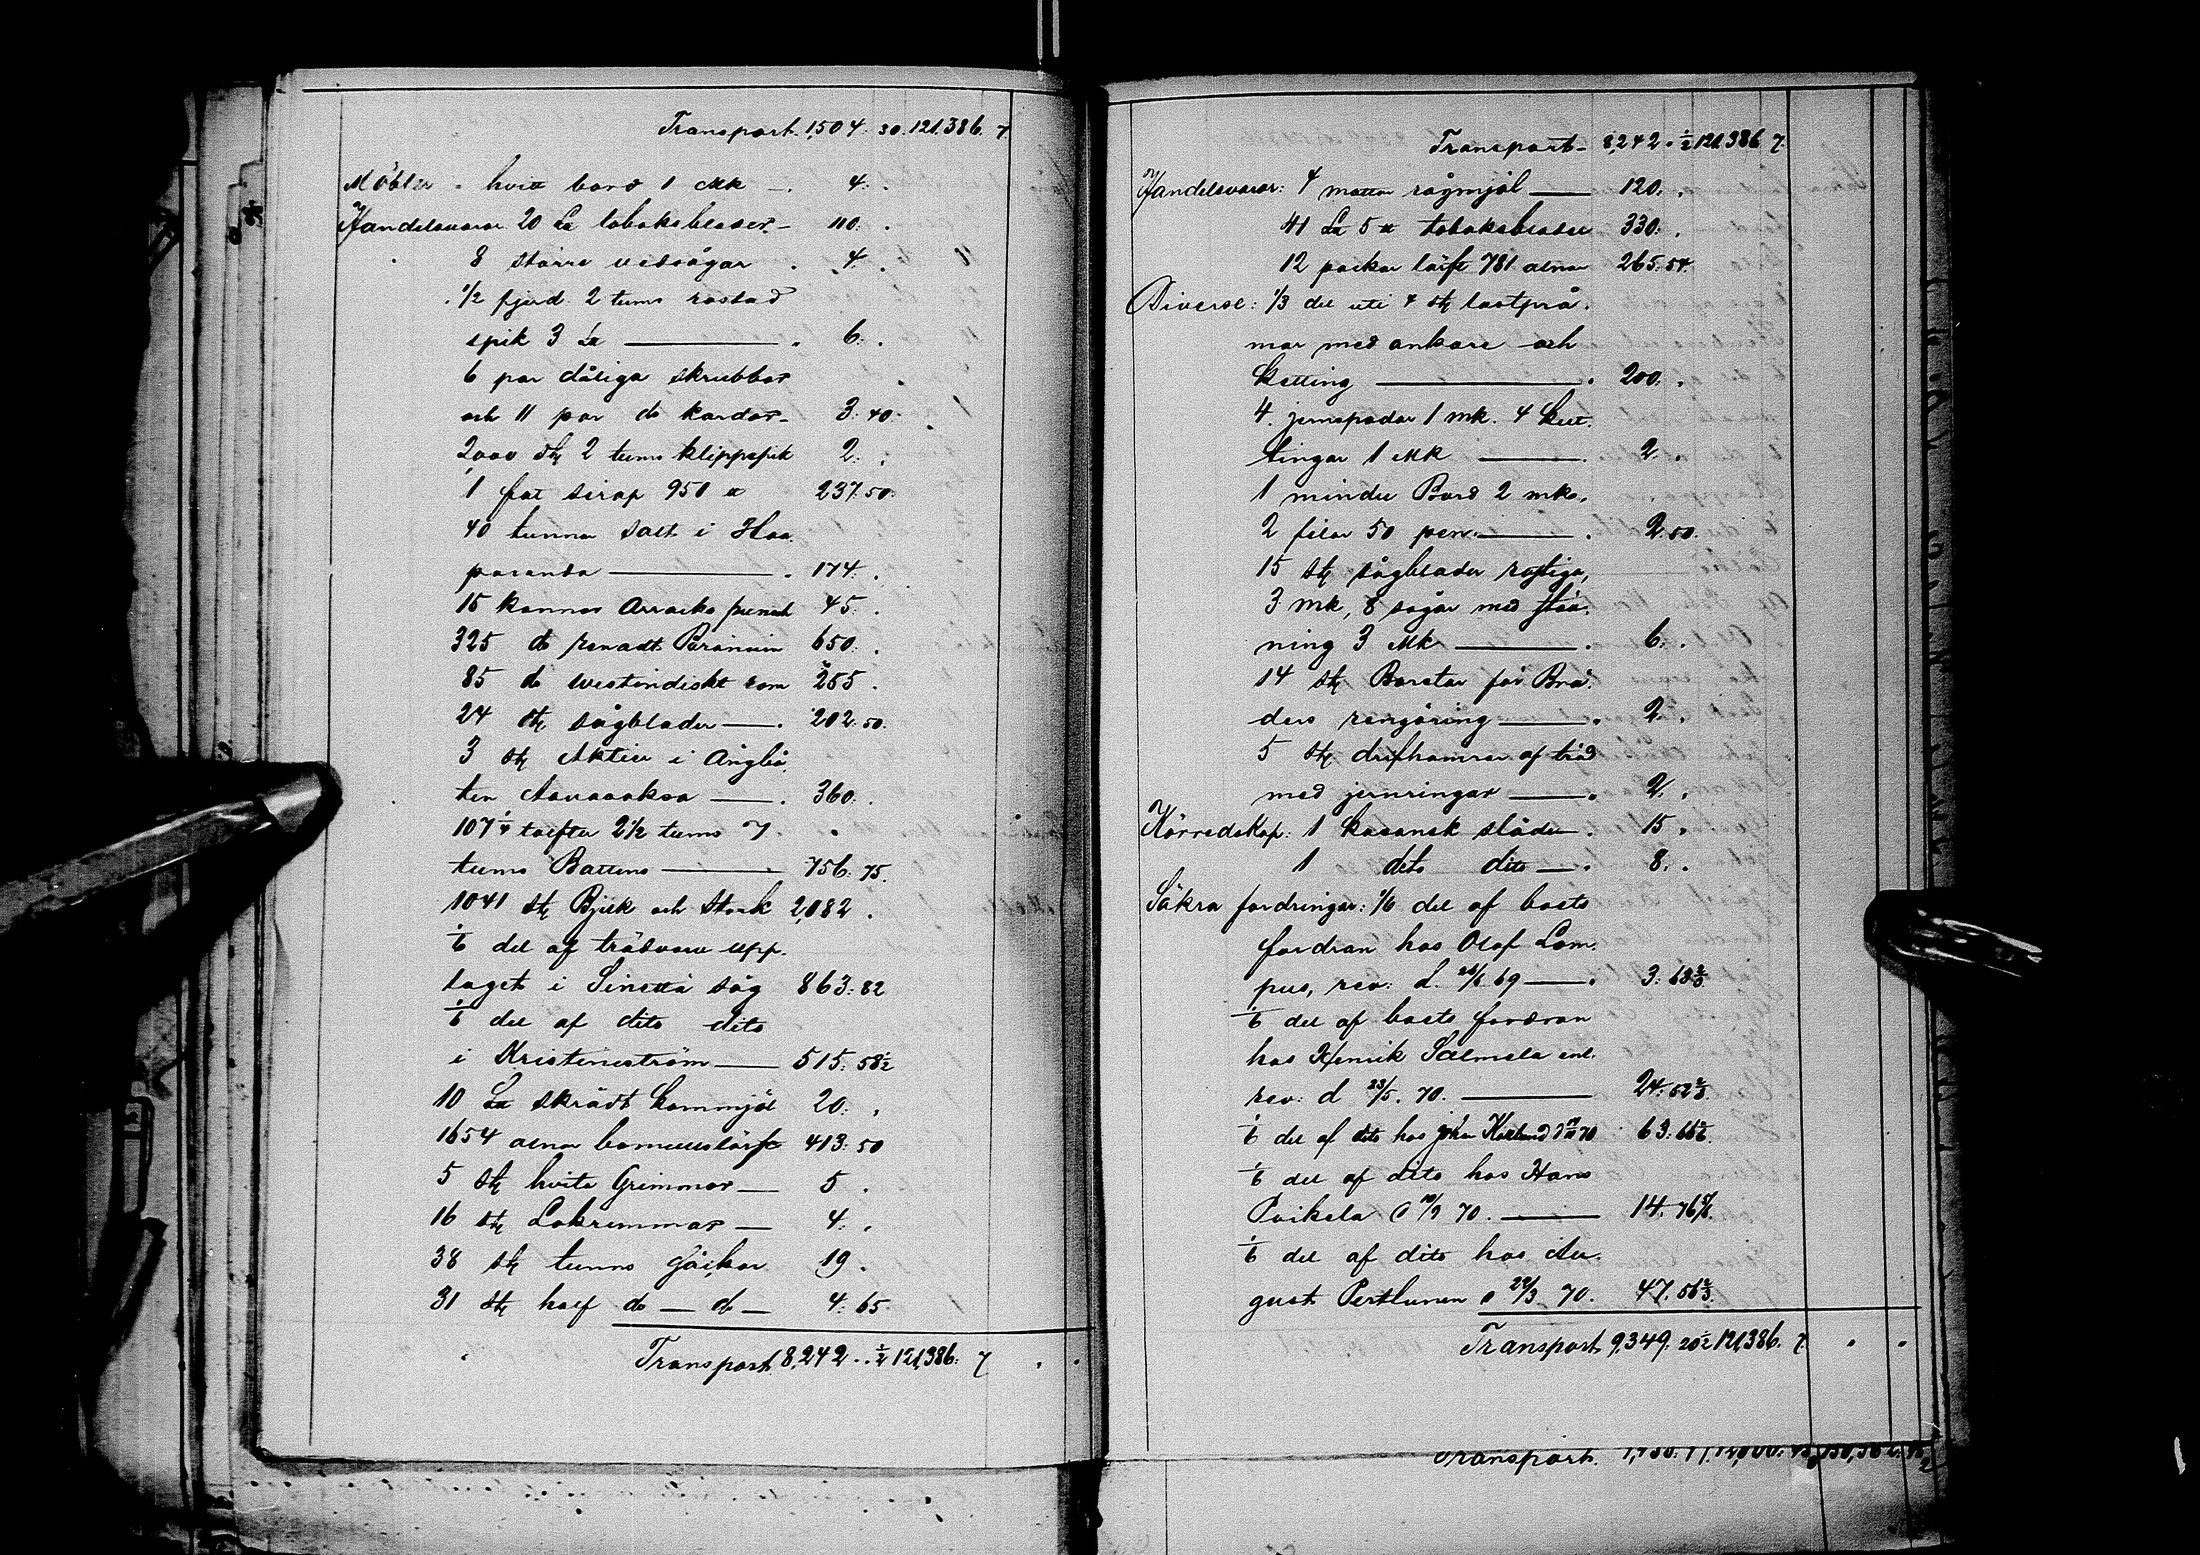 Transport. 1,504. 30. 121,386. 7
Möbler. hvitt bord 1 Mk —. 4. .
Handelsvaror 20 L℔ tobaksblader — 110. .
8 större vedsågar . 4. .
½ fjerd. 2 tums rostad
spik 3 L℔ ——— . 6. .
6 par dåliga skrubbor
och 11 par do kardor — 3. 40.
2000 stk 2 tums klippspik 2. .
1 fat sirap 950 ℔ 237. 50.
40 tunnor salt i Haa-
paranda ——— . 174. .
15 kannor Arracks punsch 45. .
325 do renadt Bränvin 650. .
85 do westindiskt rom 255 .
24 stk sågblader —. 202. 50.
3 stk Aktier i Ångbå-
ten Aavasaksa —. 360. .
107¼ tolfter 2½ tums 7
tums Battens ——— 756. 75.
1041 stk Bjelk och stock 2,082 .
⅙ del af trädvaru upp-
laget i Sinettä såg 863: 82
⅙ del af dito dito
i Kristineström — 515: 58½
10 L℔ skrädt kornmjöl 20: .
1654 alnar bomullslärft 413: 50
5 stk hvita Grimmor — 5 .
16 stk Lokrimmar — 4. .
38 stk tunns Säckar 19 .
31 stk half do — do — 4. 65.
Transport 8,242 . . ½ 121,386. 7 . .
Transport — 8,242 . ½ 121,386 7.
Handelsvaror: 4 mattor rågmjöl — 120. .
41 L℔ 5 ℔ tobaksblader 330. .
12 packor lärft 781 alnar 265. 54.
Diverse: ⅓ del uti 4 stk lastprå-
mar med ankare och
Ketting ——— . 200. .
4. jernspadar 1 mk. 4 Kut-
tingar 1 Mk ——— . 2. .
1 mindre Bord 2 mk.
2 filar 50 pen. ——— . 2. 50.
15 stk sågblader rostiga,
3 mk, 8 sågar med
ning 3 Mk ——— . 6. .
14 stk Borstar för Brä-
ders rengöring ——— . 2. .
5 stk drifhamrar af träd
med jernringar ——— . 2. .
Körredskap: 1 Kasansk släde . 15 .
1 dito dito — . 8. .
Säkra fordringar: 1/6 del af bolts
fordran hos Olof Lam-
pus, rev: d. 26/6 69 —— . 3. 68⅔
⅙ del af bolts fordran
hos Henrik Salmela enl.
rev: d 23/5. 70. ——— 24. 52⅔.
⅙ del af dito hos Johan 70 63. 66
⅙ del af dito hos Hans
Poikela d 10/9 70. ——— 14. 76⅚.
⅙ del af dito hos Au-
gust Perttunen d 22/3 70. 47. 56⅔.
Transport 9,349. 20½ 121,386. 7. . .
Transport.